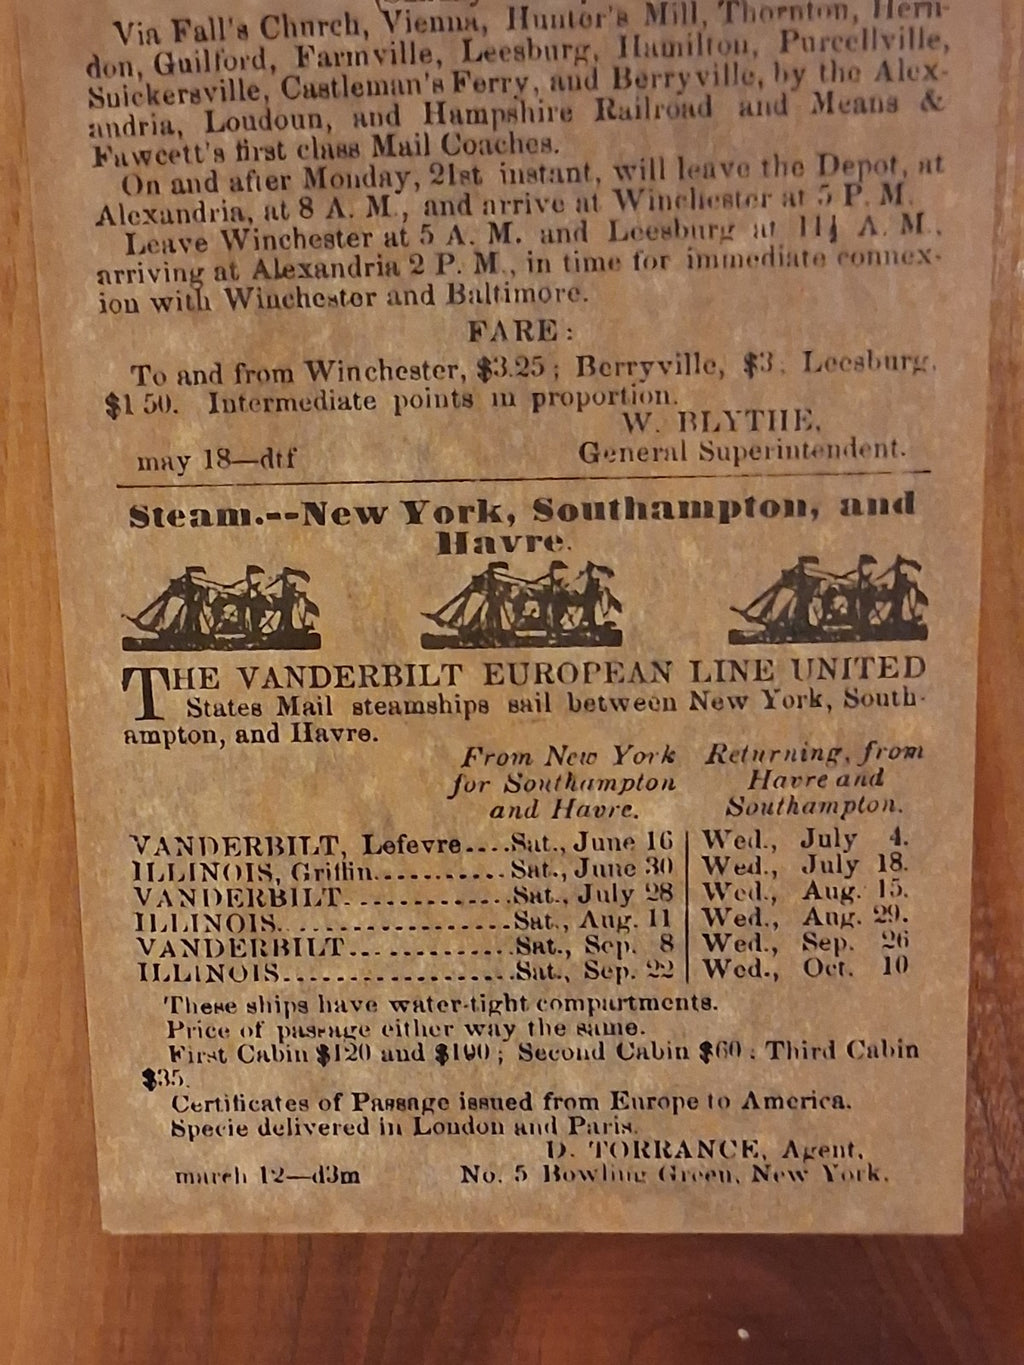 Via Fall's Church, Vienna, Hunter's Mill, Thornton, Hern-
don, Guilford, Farmville, Leesburg, Hamilton, Purcellville,
Snickersville, Castleman's Ferry, and Berryville, by the Alex-
andria, Loudoun, and Hampshire Railroad and Means &
Fawcett's first class Mail Coaches.
On and after Monday, 21st instant, will leave the Depot, at
Alexandria, at 8 A. M., and arrive at Winchester at 5 P. M.
Leave Winchester at 5 A. M. and Leesburg at 11½ A. M.,
arriving at Alexandria 2 P. M., in time for immediate connex-
ion with Winchester and Baltimore.
FARE:
To and from Winchester, $3.25; Berryville, $3. Leesburg,
$1 50. Intermediate points in proportion.
W. BLYTHE,
may 18—dtf General Superintendent.
Steam.--New York, Southampton, and
Havre.
THE VANDERBILT EUROPEAN LINE UNITED
States Mail steamships sail between New York, South-
ampton, and Havre.
From New York Returning, from
for Southampton Havre and
and Havre. Southampton.
VANDERBILT, Lefevre....Sat., June 16 | Wed., July 4.
ILLINOIS, Griffin...........Sat., June 30 | Wed., July 18.
VANDERBILT.............Sat., July 28 | Wed., Aug. 15.
ILLINOIS..................Sat., Aug. 11 | Wed., Aug. 29.
VANDERBILT.............Sat., Sep. 8 | Wed., Sep. 26
ILLINOIS..................Sat., Sep. 22 | Wed., Oct. 10
These ships have water-tight compartments.
Price of passage either way the same.
First Cabin $120 and $100; Second Cabin $60: Third Cabin
$35.
Certificates of Passage issued from Europe to America.
Specie delivered in London and Paris.
D. TORRANCE, Agent,
march 12—d3m No. 5 Bowling Green, New York.